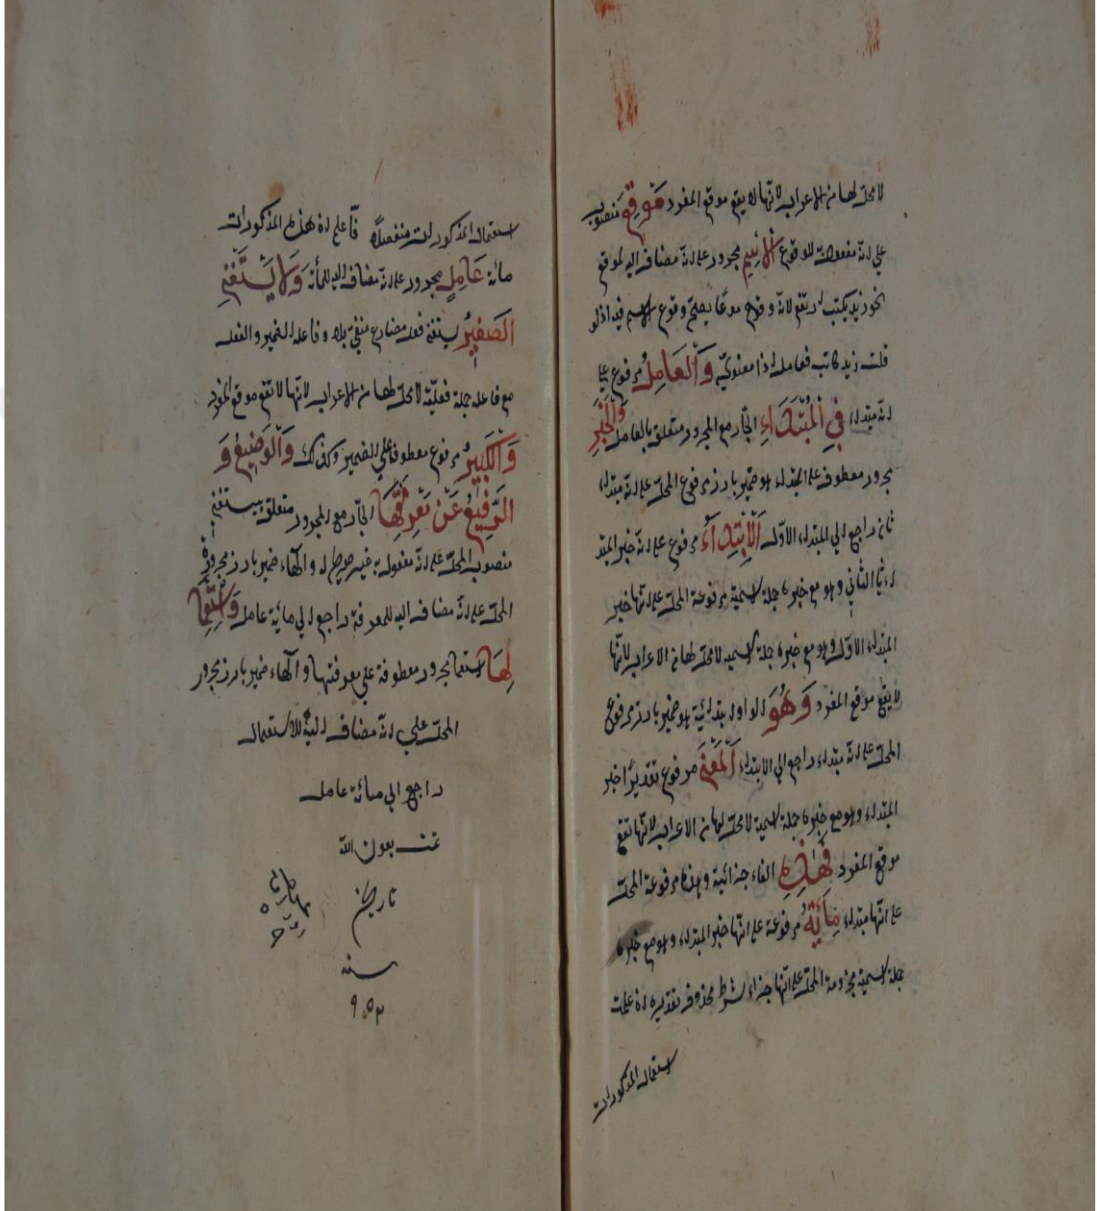 لا محل لها من الاعراب لانها لا يقع موقع المفرد مَوْقِعَ منصوب
على انه مفعول للوقوع اَلْاِسْمِ مجرور على انه مضاف اليه لموقع
نحو زيد يكتب لانه وقع موقعا يصح وقوع الاسم فيه اذ لو
قلت زيد كاتب فعامله اذا معنوى وَالْعَامِلُ مرفوع على
انه مبتداء فِى الْمُبْتَدَاءِ الجار مع المجرور متعلق بالعامل وَالْخَبَرِ
مجرور معطوف على المبتداء هو ضمير بارز مرفوع المحل على انه مبتداء
ثان راجع الى المبتداء الاول اَلْاِبْتِدَاءُ مرفوع على انه خبر المبتد
اء الثانى وهو مع خبره جملة اسمية مرفوعة المحل على انها خبر
المبتداء الاول وهو مع خبره جملة اسمية لا محل لها من الاعراب لانها
لا يقع موقع المفرد وَهُوَ الواو ابتدائية هو ضمير بارز مرفوع
المحل على انه مبتداء راجع الى الابتداء اَلْمَعْنَى مرفوع تقديرا خبر
المبتداء وهو مع خبره جملة اسمية لا محل لها من الاعراب لانها تقع
موقع المفرد فَهٰذِهِ الفاء جزائية وهذه مرفوعة المحل
على انها مبتداء مِائَةُ مرفوعة على انها خبر المبتداء وهو مع خبره
جملة اسمية مجزومة المحل على انها جزاء شرط محذوف تقديره اذ علمت
استعمال المذكورات
استعمال المذكورات منفصلاً فاعلم ان هذه المذكورات
مائة عَامِلٍ مجرور على انه مضاف اليه للمائة وَلَا يَسْتَغْنِى
اَلصَّغِيرُ يستغنى فعل مضارع منفى بلا وفاعله الضمير والفعل
مع فاعله جملة فعلية لا محل لها من الاعراب لانها لا تقع موقع المفرد
وَالْكَبِيرُ مرفوع معطوف على الصغير وكذلك وَالْوَضِيعُ وَ
الرَّفِيعُ عَنْ مَعْرِفَتِهَا الجار مع المجرور متعلق بيستغنى
منصوب المحل على انه مفعول به غير صريح له والهاء ضمير بارز مجرورة
المحل على انه مضاف اليه للمعرفة راجع الى مائة عامل وَاسْتِعْمَا
لِهَا استعما مجرور معطوفة على معرفتها والهاء ضمير بارز مجرور
المحل على انه مضاف اليه للاستعمال
راجع الى مائة عامل
تمت بعون الله
تاريخ
سنه
٩٥٢